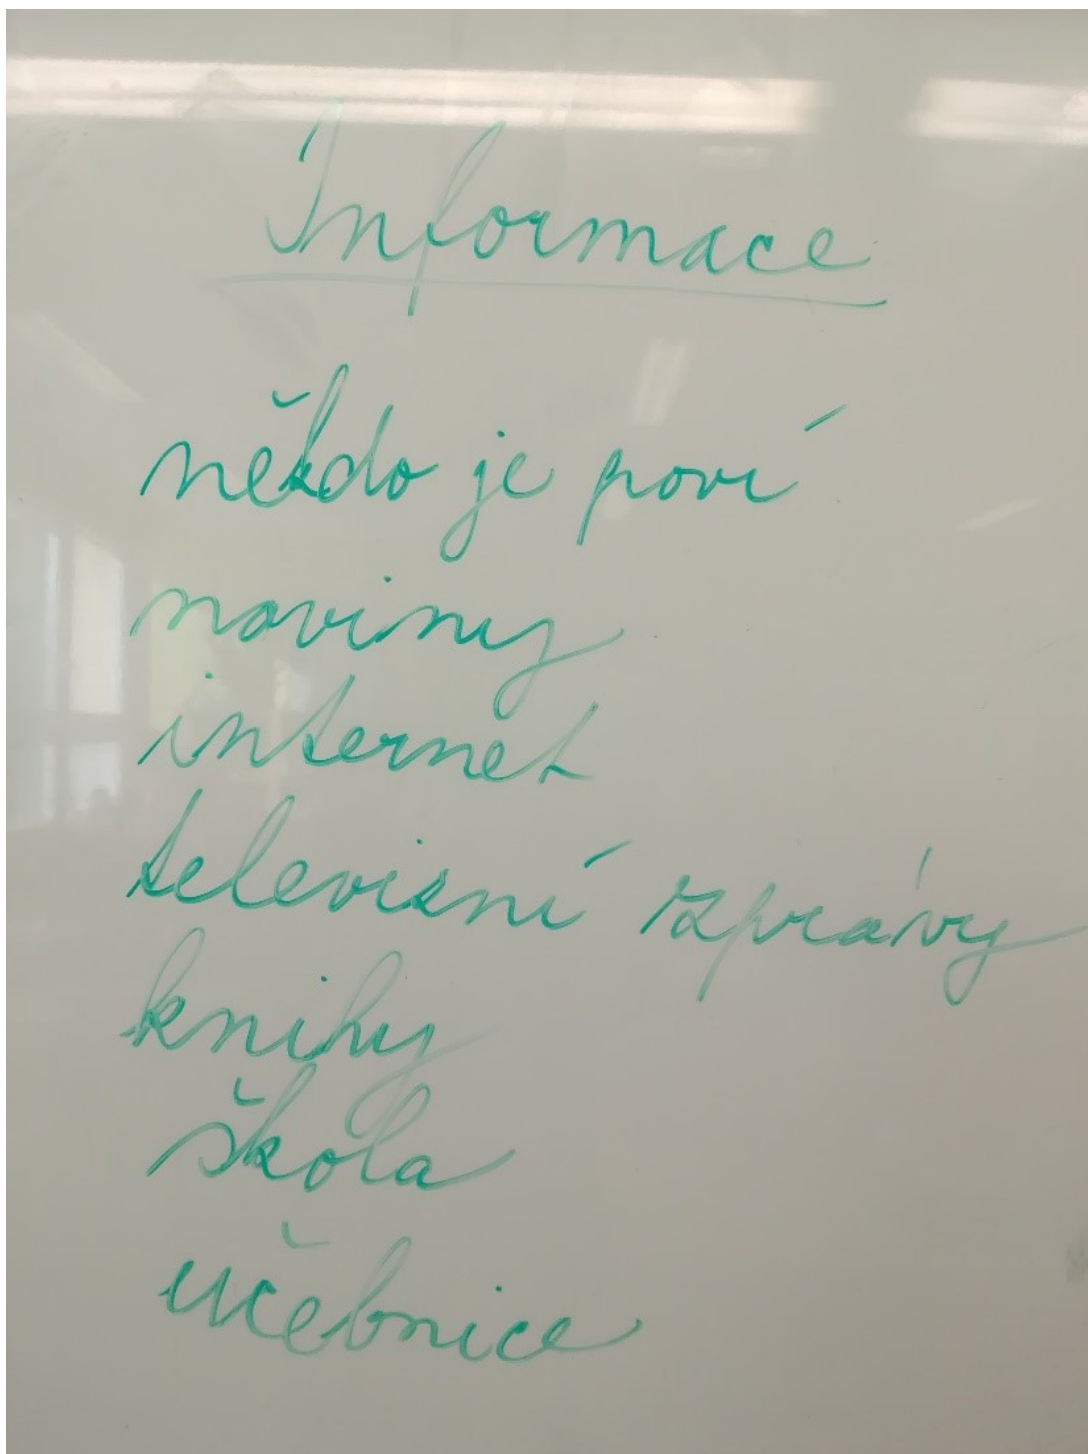 Informace
někdo je poví
noviny
internet
televizní zprávy
knihy
škola
učebnice